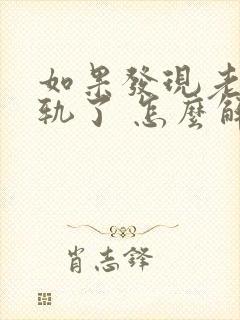 如果發現老
軌了 怎麼解
肖志鋒